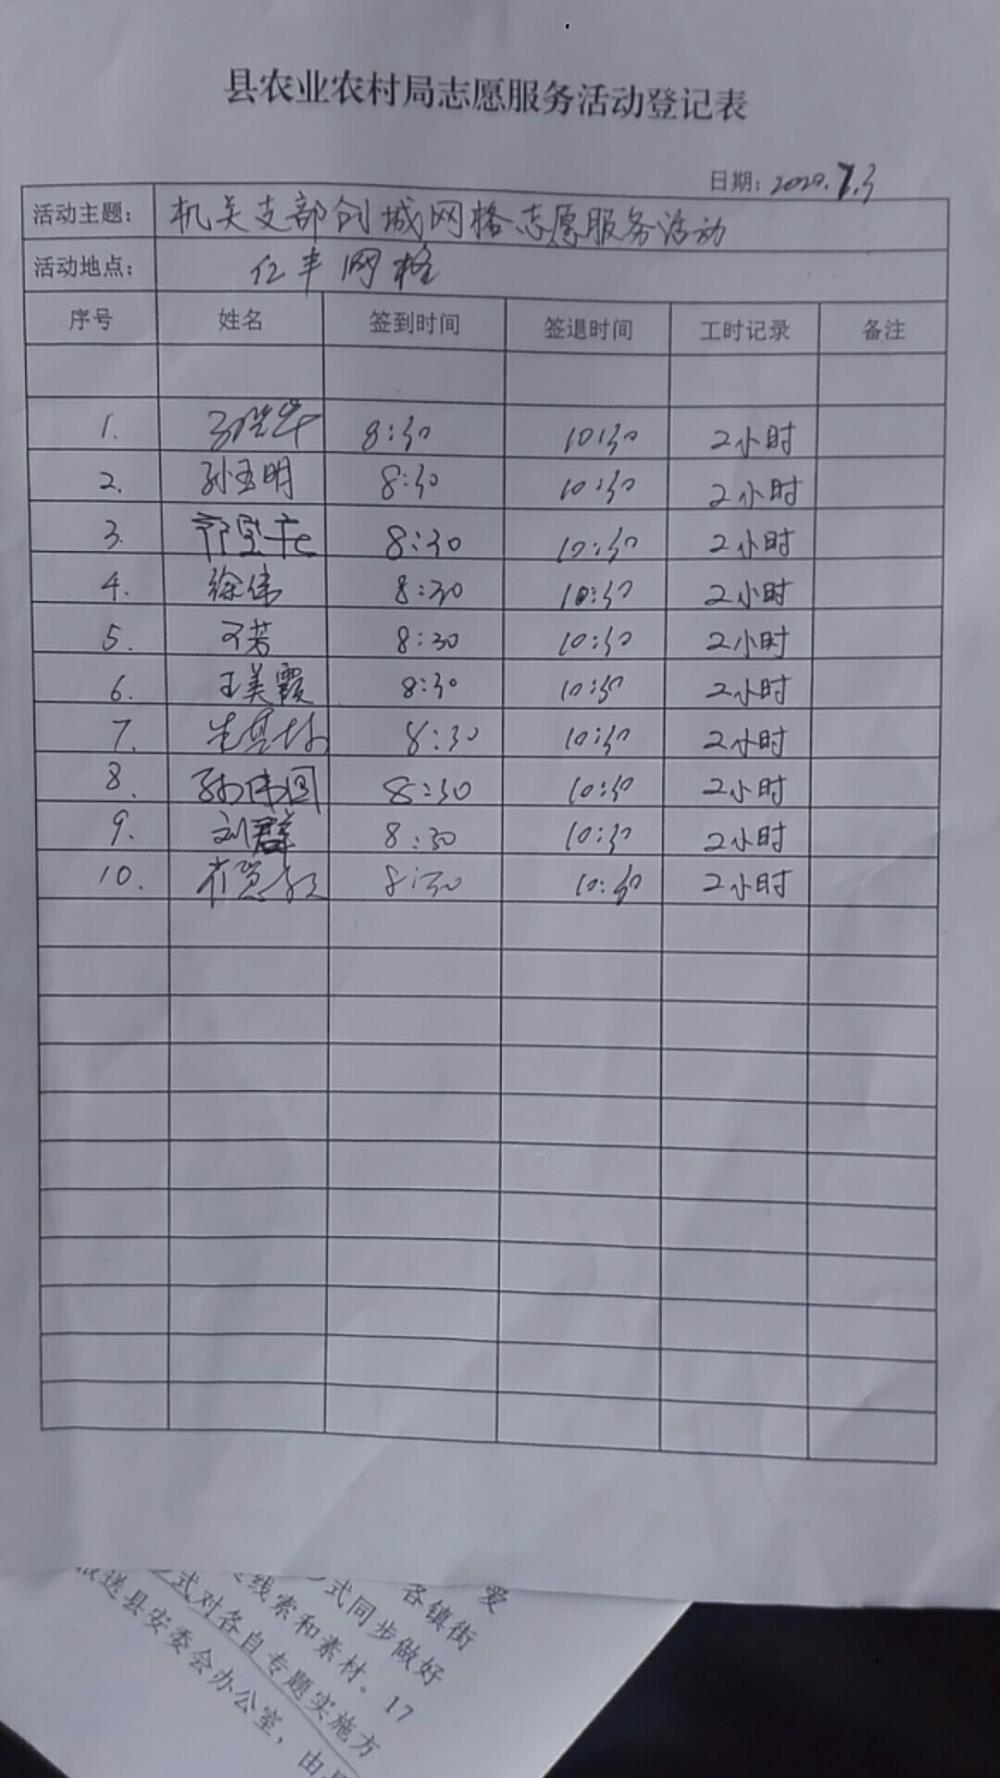 县农业农村局志愿服务活动登记表
日期：2020.7.3
活动主题： 机关支部创城网格志愿服务活动
活动地点： 仁丰网格
序号 姓名 签到时间 签退时间 工时记录 备注
1. 8:30 10:30 2小时
2. 孙玉明 8:30 10:30 2小时
3. 8:30 10:30 2小时
4. 徐伟 8:30 10:30 2小时
5. 芳 8:30 10:30 2小时
6. 王美霞 8:30 10:30 2小时
7. 8:30 10:30 2小时
8. 孙伟国 8:30 10:30 2小时
9. 刘群 8:30 10:30 2小时
10. 8:30 10:30 2小时
爱
各镇街
式同步做好
线索和素材。17
式对各自专题实施方
送县安委会办公室，由